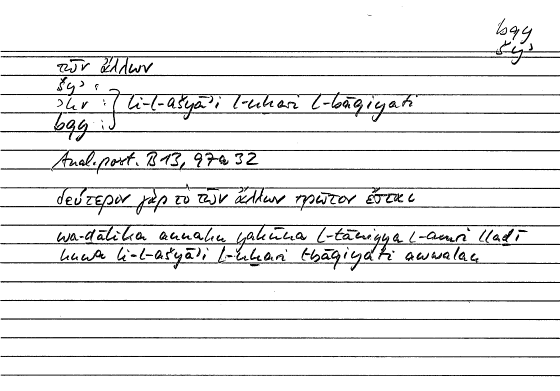 bqy
šyʾ
τῶν ἄλλων
šyʾ :
ʾḫr : } li-l-ašyāʾi l-uḫari l-bāqiyati
bqy :
Anal. post. B 13, 97a32
δεύτερον γὰρ τὸ τῶν ἄλλων πρῶτον ἔσται
wa-ḏālika annahu yakūnu l-ṯāniya l-amri llaḏī
huwa li-l-ašyāʾi l-uḫari l-bāqiyati awwalan